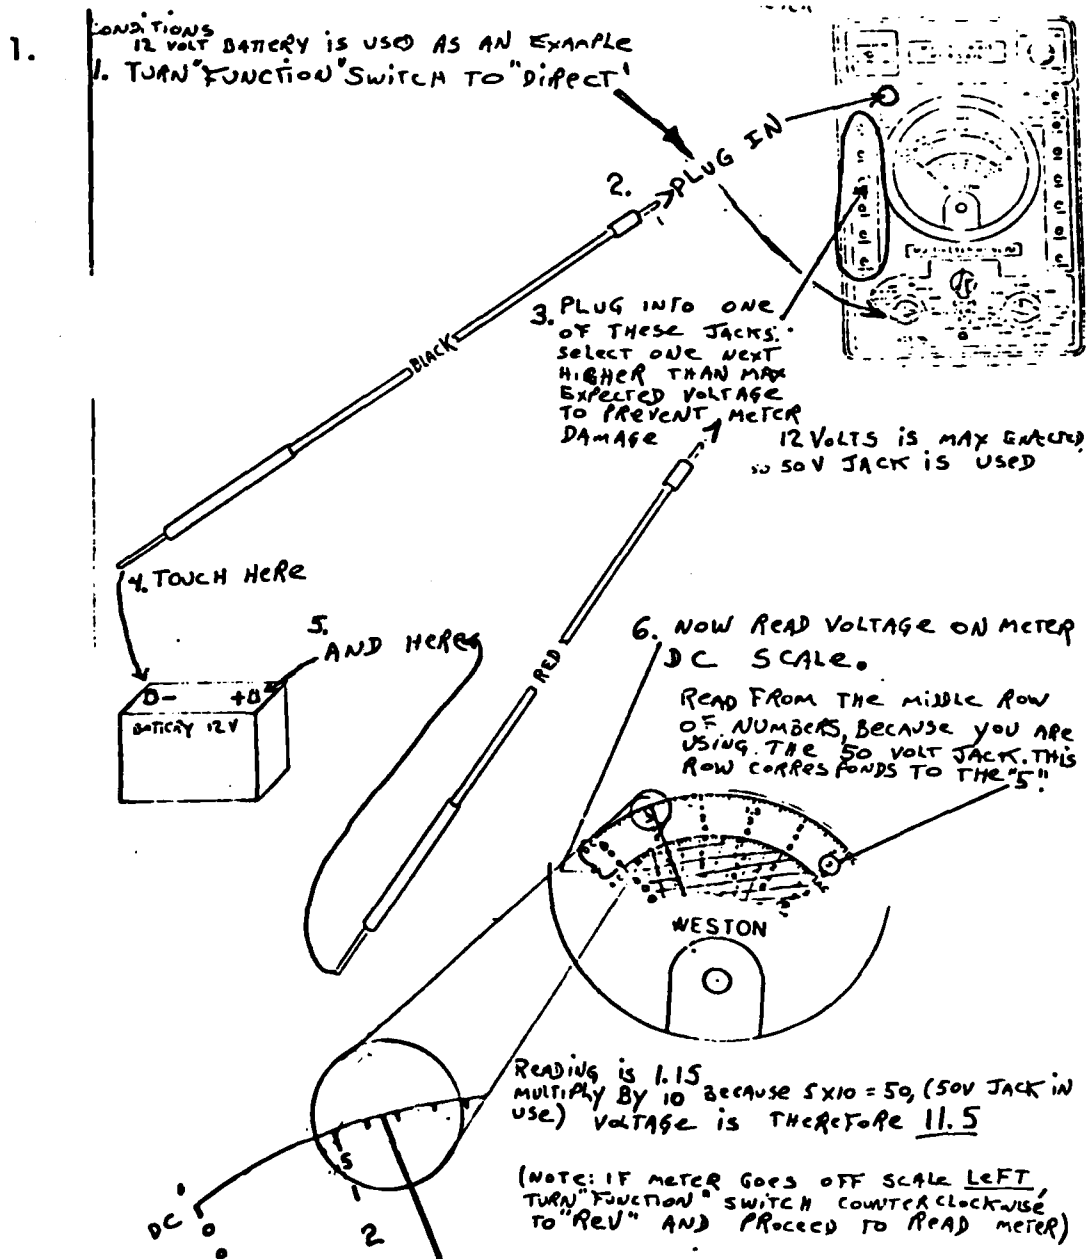 1.
CONDITIONS
12 VOLT BATTERY is USED AS AN EXAMPLE
1. TURN "FUNCTION" SWITCH TO "DIRECT'
2.
PLUG IN
BLACK
3. PLUG INTO ONE
OF THESE JACKS.
SELECT ONE NEXT
HIGHER THAN MAX
EXPECTED VOLTAGE
TO PREVENT METER
DAMAGE
12 VOLTS is MAX
50V JACK is USED
4. TOUCH HERE
5.
AND HERE
RED
- +
BATTERY 12V
6. NOW READ VOLTAGE ON METER
DC SCALE.
READ FROM THE MIDDLE ROW
OF NUMBERS, BECAUSE YOU ARE
USING THE 50 VOLT JACK. THIS
ROW CORRESPONDS TO THE "5".
WESTON
READING is 1.15
MULTIPLY BY 10 BECAUSE 5X10 = 50, (50V JACK IN
USE) VOLTAGE is THEREFORE 11.5
(NOTE: IF METER GOES OFF SCALE LEFT,
TURN "FUNCTION" SWITCH COUNTERCLOCKWISE
TO "REV" AND PROCEED TO READ METER)
5
1
2
DC 0
0